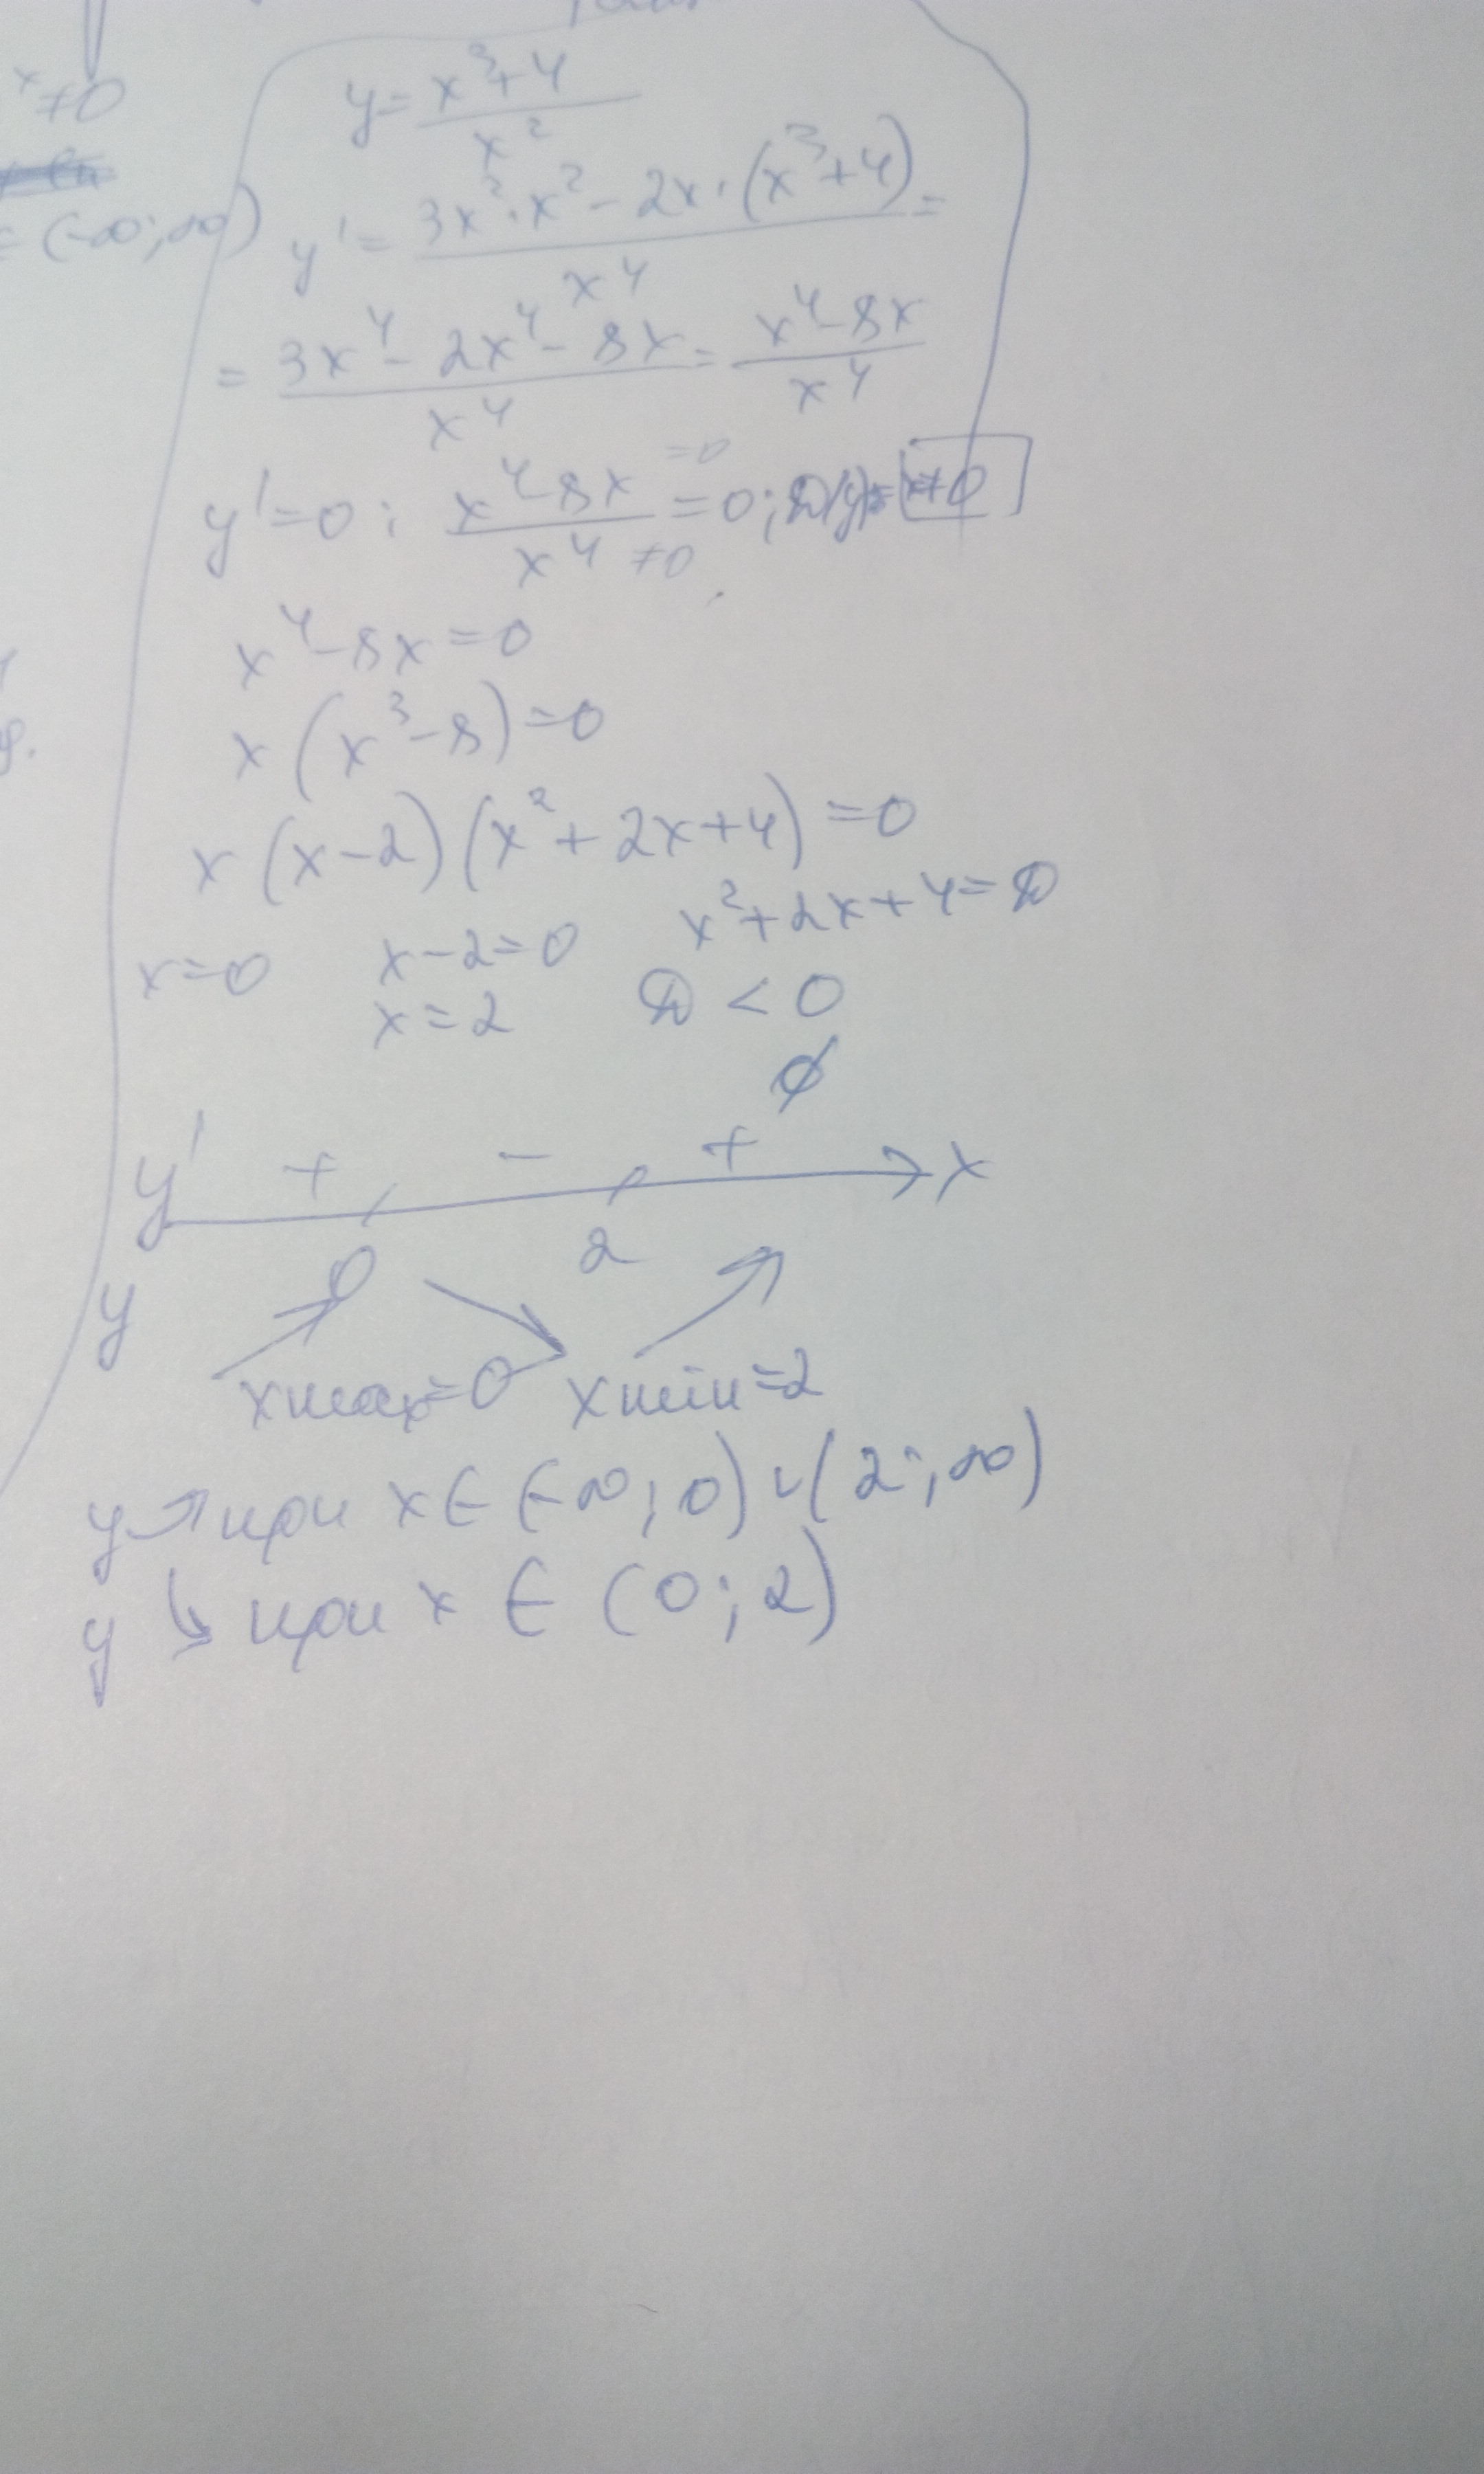 x≠0
= (-∞; ∞)
y = (x³+4)/x²
y' = (3x²·x² - 2x·(x³+4))/x⁴ =
= (3x⁴ - 2x⁴ - 8x)/x⁴ = (x⁴-8x)/x⁴
y'=0: (x⁴-8x)/x⁴ = 0; D(y)= x≠0
=0
≠0
x⁴-8x=0
x(x³-8)=0
x(x-2)(x²+2x+4)=0
x=0 x-2=0 x²+2x+4=D
x=2 D<0
∅
y' + - + x
0 2
y
xmax=0 xmin=2
y↗при x∈(-∞;0)∪(2;∞)
y ↘ при x ∈ (0;2)